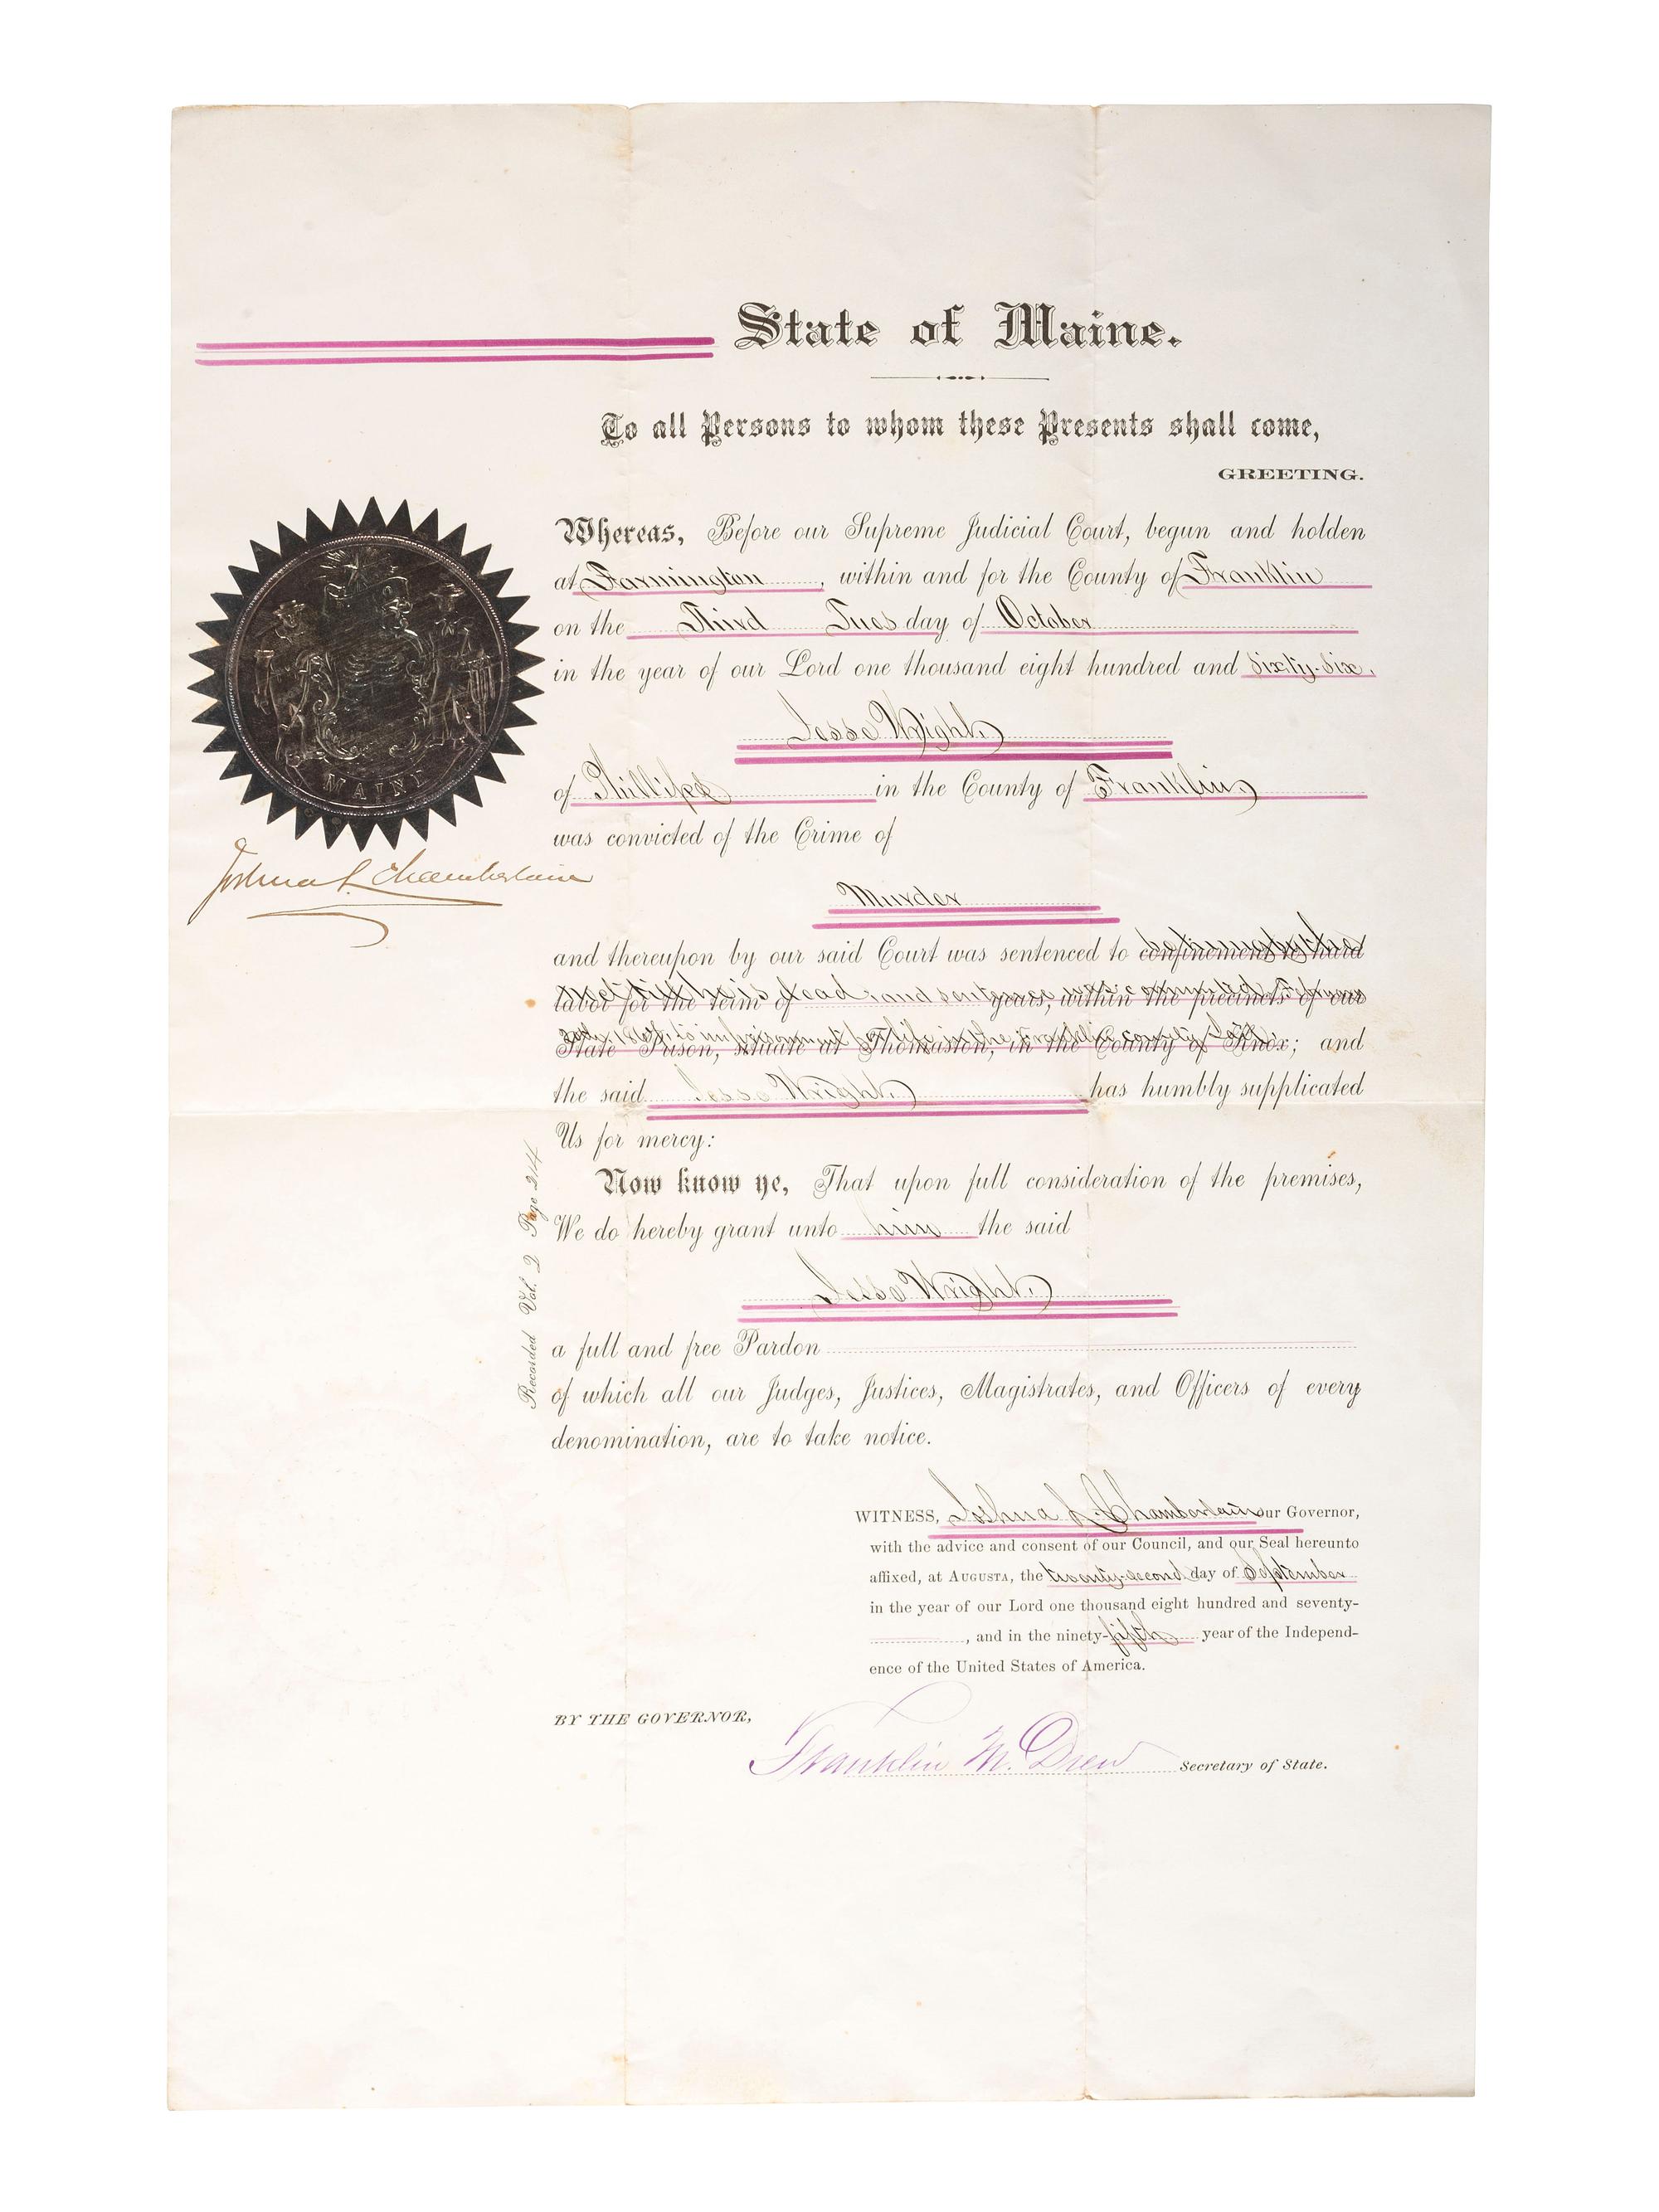 State of Maine.
To all Persons to whom these Presents shall come,
GREETING.
Whereas, Before our Supreme Judicial Court, begun and holden
at Farmington, within and for the County of Franklin
on the Third Tuesday of October
in the year of our Lord one thousand eight hundred and sixty-six,
Jesse Wright,
of Phillips in the County of Franklin,
was convicted of the Crime of
Murder
and thereupon by our said Court was sentenced to confinement to hard
labor for the term of years, within the precincts of our
State Prison, situate at Thomaston, in the County of Knox; and
the said Jesse Wright, has humbly supplicated
Us for mercy:
Now know ye, That upon full consideration of the premises,
We do hereby grant unto him the said
Jesse Wright,
a full and free Pardon
of which all our Judges, Justices, Magistrates, and Officers of every
denomination, are to take notice.
MAINE
Joshua L. Chamberlain
Recorded Vol. 2 Page 214
WITNESS, Joshua L. Chamberlain our Governor,
with the advice and consent of our Council, and our Seal hereunto
affixed, at AUGUSTA, the twenty-second day of September
in the year of our Lord one thousand eight hundred and seventy-
, and in the ninety-fifth year of the Independ-
ence of the United States of America.
BY THE GOVERNOR,
Franklin M. Drew Secretary of State.